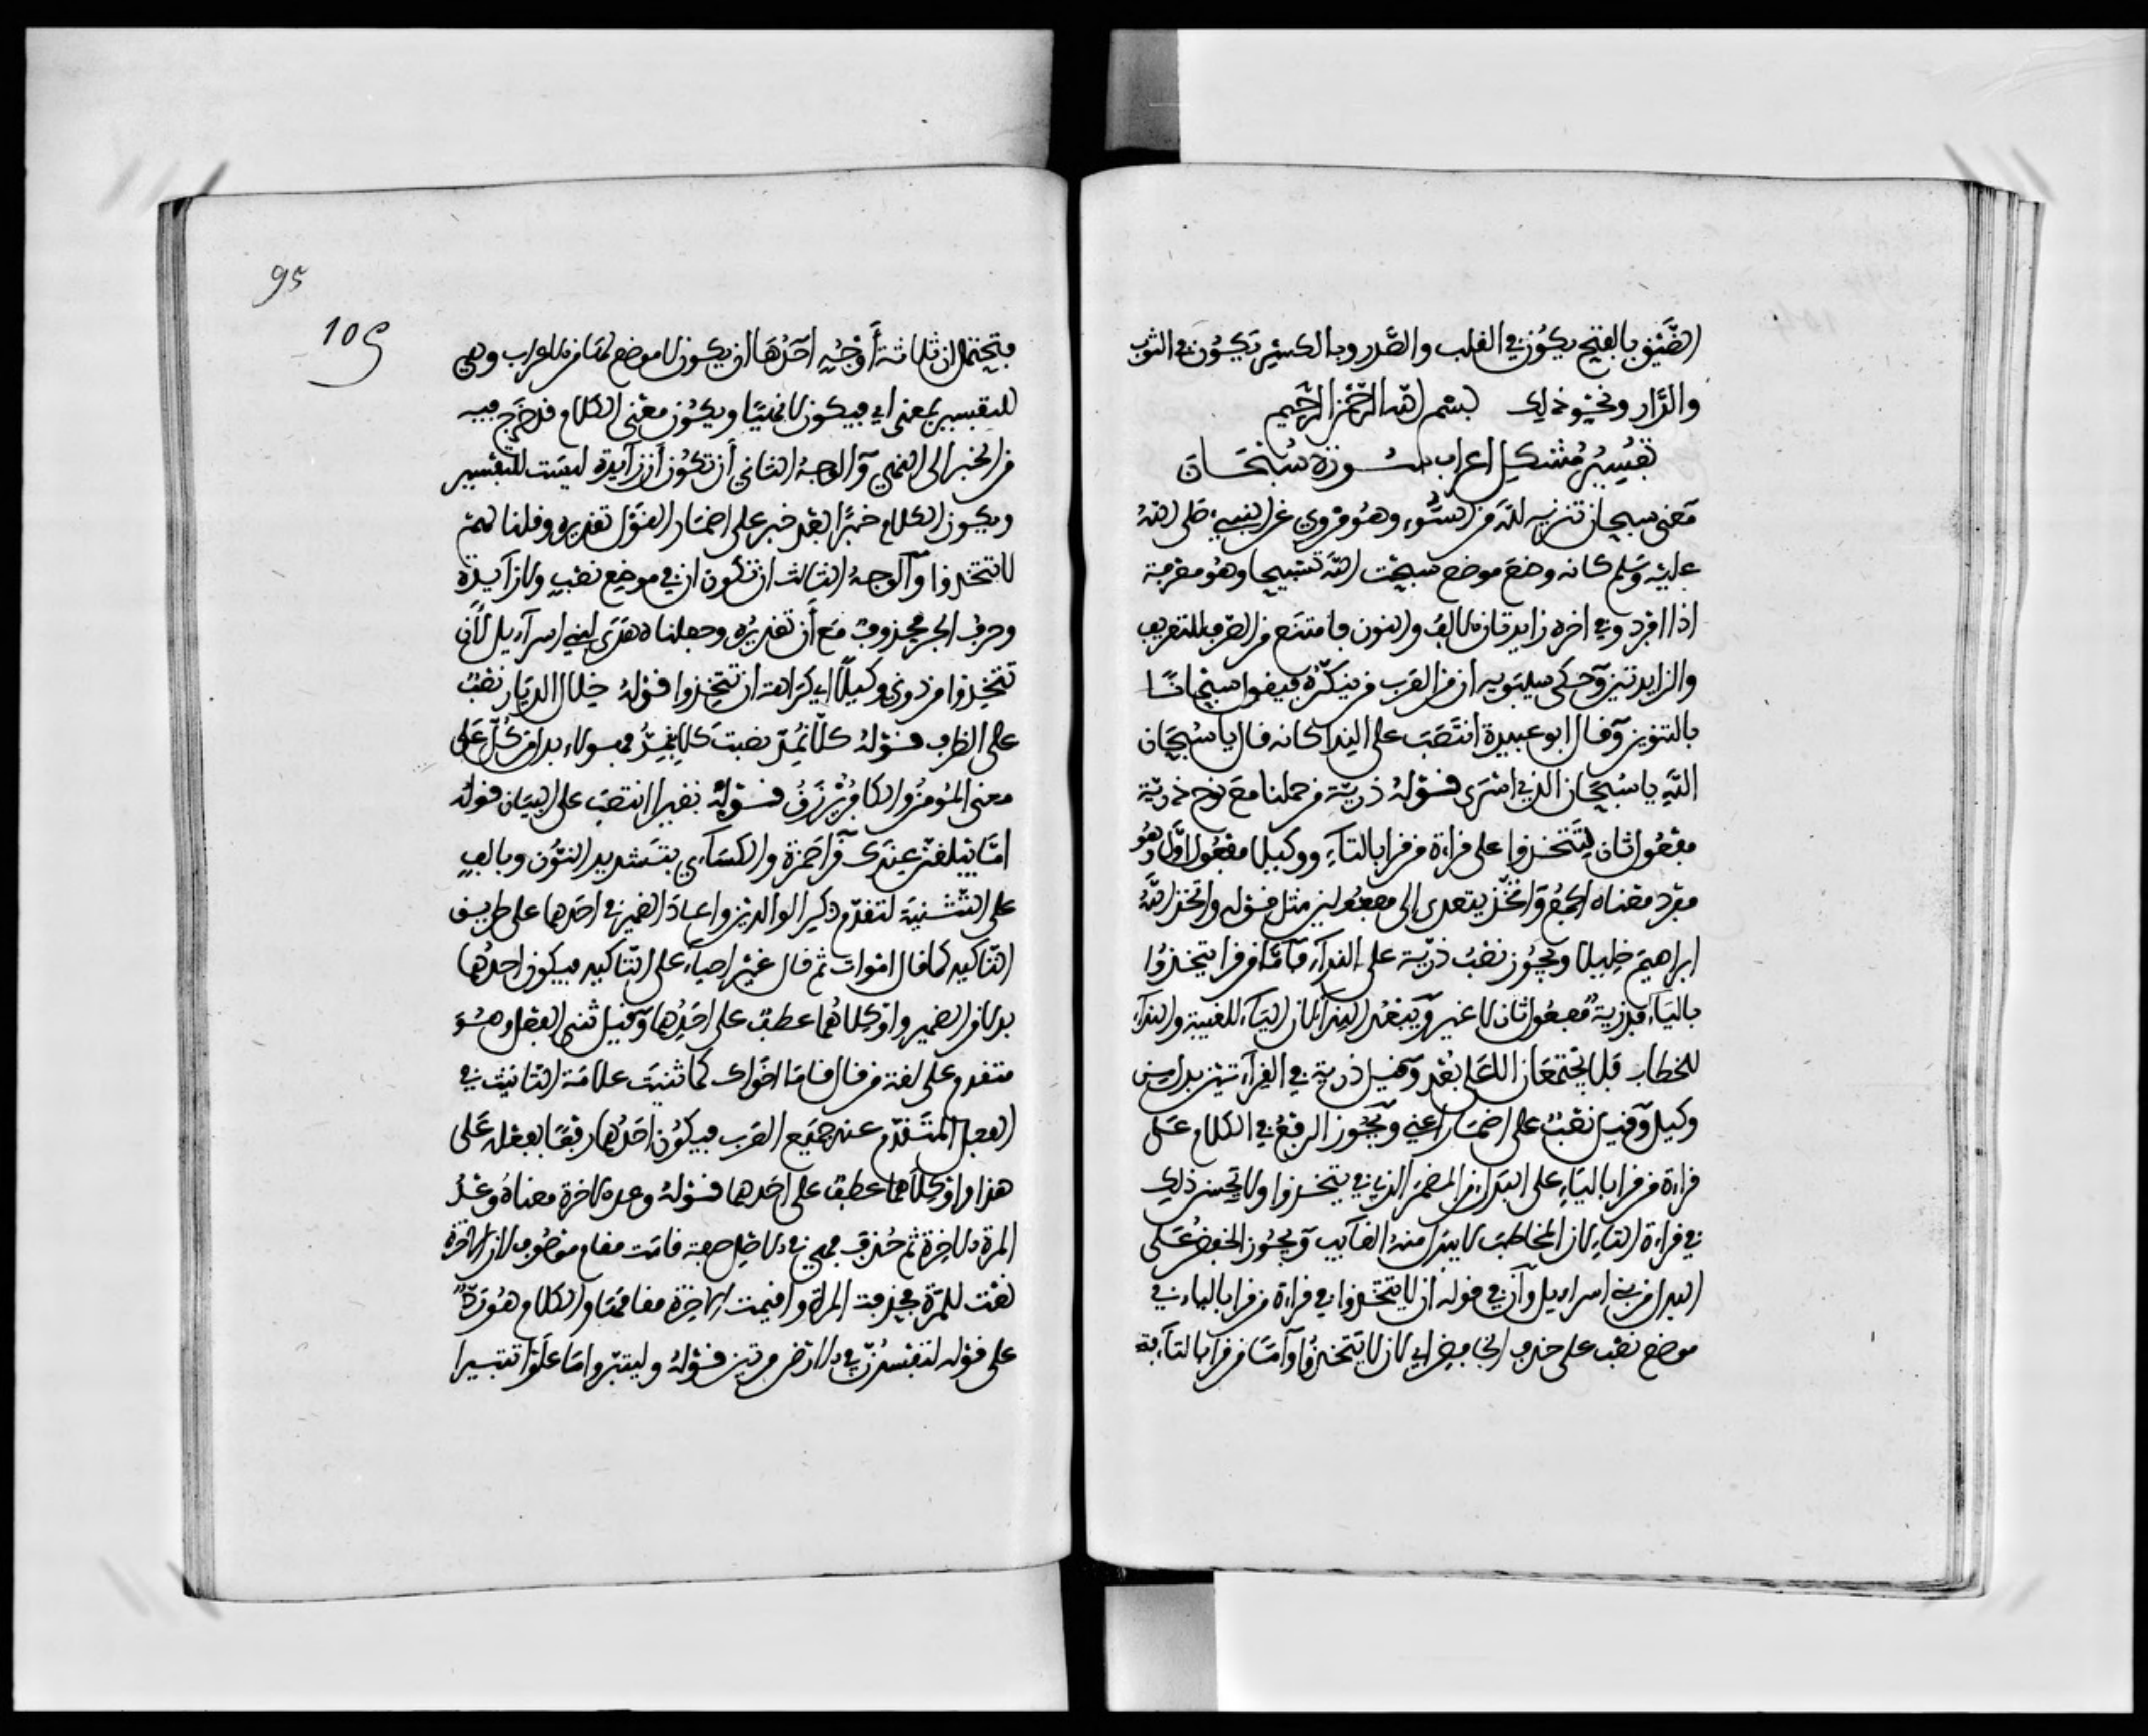 الضيق بالفتح يكون في القلب والصدر وبالكسر يكون في الثوب
والدار ونحو ذلك بسم الله الرحمن الرحيم
تفسير مشكل اعراب سورة سبحان
معنى سبحان تنزيه لله من السوء وهو مروي عن النبي صلى الله
عليه وسلم كانه وضع موضع سبحت الله تسبيحا وهو معرفة
اذا افرد وفي اخره زايدتان الالف والنون فامتنع من الصرف للتعريف
والزايدتين وحكى سيبويه ان من العرب من ينكره فيقول سبحانا
بالتنوين وقال ابو عبيدة انتصب على الندا كانه قال يا سبحان
الله يا سبحان الذي اسرى قوله ذرية من حملنا مع نوح ذرية
مفعول ثان لتتخذوا على قراءة من قرا بالتاء ووكيلا مفعول اول وهو
مفرد معناه الجمع واتخذ يتعدى الى مفعولين مثل قوله واتخذ الله
ابراهيم خليلا ويجوز نصب ذرية على النداء فاما من قرا يتخذوا
بالياء فذرية مفعول ثان لا غير ويبعد النداء لان الياء للغيبة والنداء
للخطاب فلا يجتمعان الا على بعد وقيل ذرية في القراءتين بدل من
وكيل وقيل نصب على اضمار اعني ويجوز الرفع في الكلام على
قراءة من قرا بالياء على البدل من المضمر الذي في يتخذوا ولا يحسن ذلك
في قراءة التاء لان المخاطب لا يبدل منه الغايب ويجوز الخفض على
البدل من بني اسراءيل وان في قوله ان لا يتخذوا في قراءة من قرا بالياء في
موضع نصب على حذف الخافض اي لان لا يتخذوا واما من قرا بالتاء فه
95
105
فيحتمل ان ثلاثة اوجه احدها ان يكون لا موضع لها من الاعراب وهي
للتفسير بمعنى اي فيكون لا نهيا ويكون معنى الكلام قد خرج فيه
من الخبر الى النهي والوجه الثاني ان تكون ان زايدة ليست للتفسير
ويكون الكلام خبرا بعد خبر على اضمار القول تقديره وقلنا لهم
لا تتخذوا والوجه الثالث ان تكون ان في موضع نصب ولا زايدة
وحرف الجر محذوف مع ان تقديره وجعلناه هدى لبني اسراءيل لان
تتخذوا من دوني وكيلا اي كراهة ان تتخذوا قوله خلال الديار نصب
على الظرف قوله كلا نمد نصبت كلا بنمد وهولاء بدل من كل على
معنى المومن والكافر نرزق قوله نفيرا انتصب على البيان قوله
اما يبلغن عندك قرا حمزة والكساءي بتشديد النون وبالف
على التثنية لتقدم ذكر الوالدين واعاد الضمير في احدهما على طريق
التاكيد كما قال اموات ثم قال غير احياء على التاكيد فيكون احدهما
بدلا من الضمير واو كلاهما عطف على احدهما وقيل ثنى الفعل وهو
متقدم على لغة من قال قاما اخواك كما ثنيت علامة التانيث في
الفعل المتقدم عند جميع العرب فيكون احدهما رفعا بفعله على
هذا واو كلاهما عطف على احدهما قوله وعد الاخرة معناه وعد
المرة الاخرة ثم حذف فهي في الاصل صفة قامت مقام موصوف لان الاخرة
نعت للمرة فحذفت المرة واقيمت الاخرة مقامها والكلام هو رد
على قوله لتفسدن في الارض مرتين قوله وليتبروا ما علوا تتبيرا